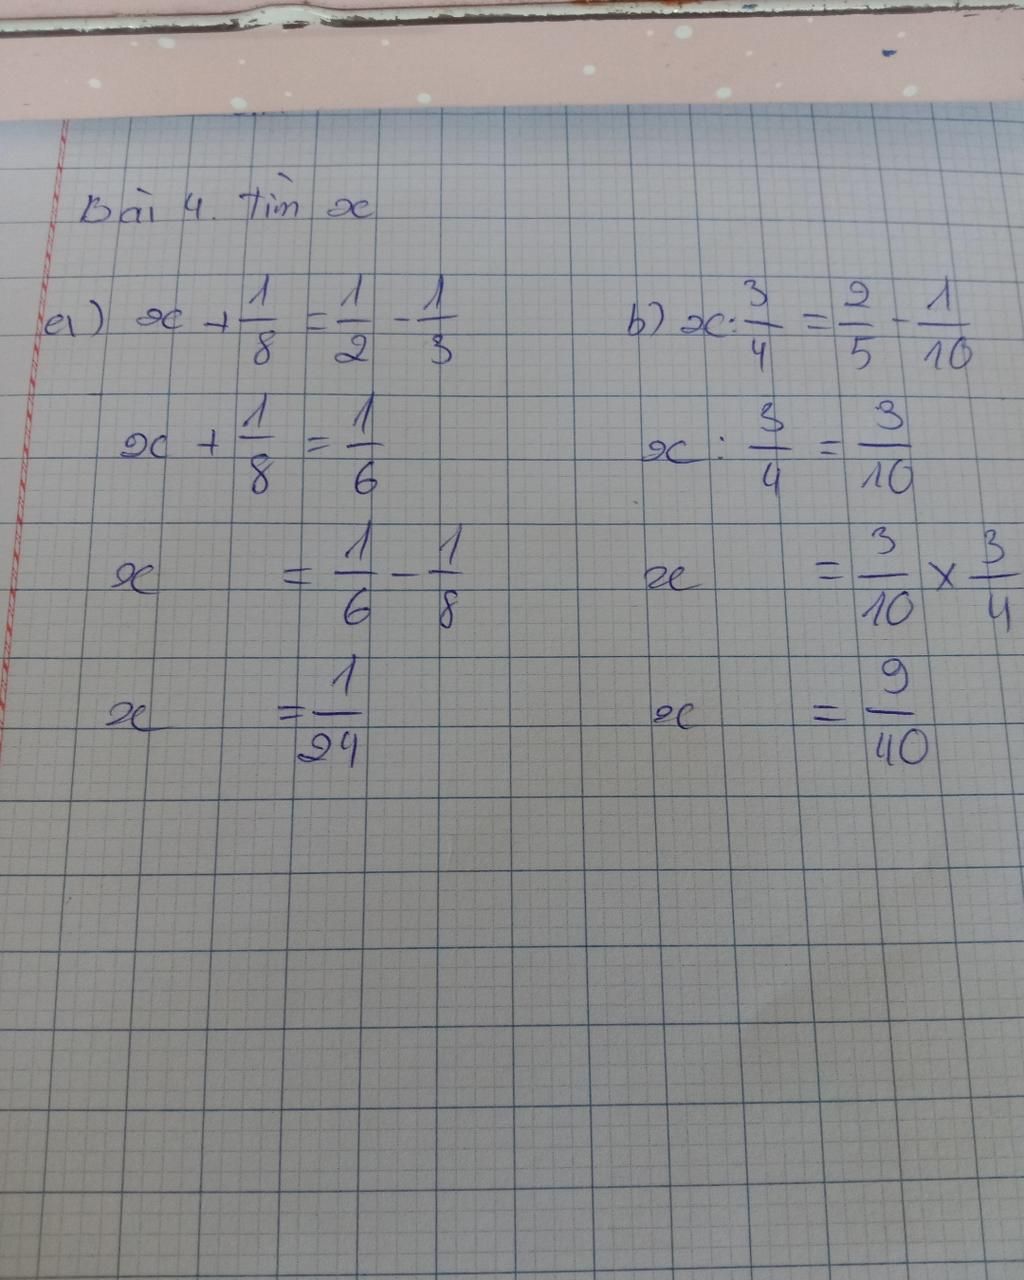 Bài 4. Tìm x
a) x + 1/8 = 1/2 - 1/3
x + 1/8 = 1/6
x = 1/6 - 1/8
x = 1/24
b) x : 3/4 = 2/5 - 1/10
x : 3/4 = 3/10
x = 3/10 × 3/4
x = 9/40